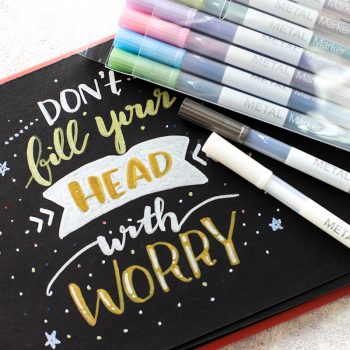 DON'T
fill your
HEAD
with
WORRY
METAL Marker
METAL Marker
METAL Marker
METAL Marker
METAL
METAL